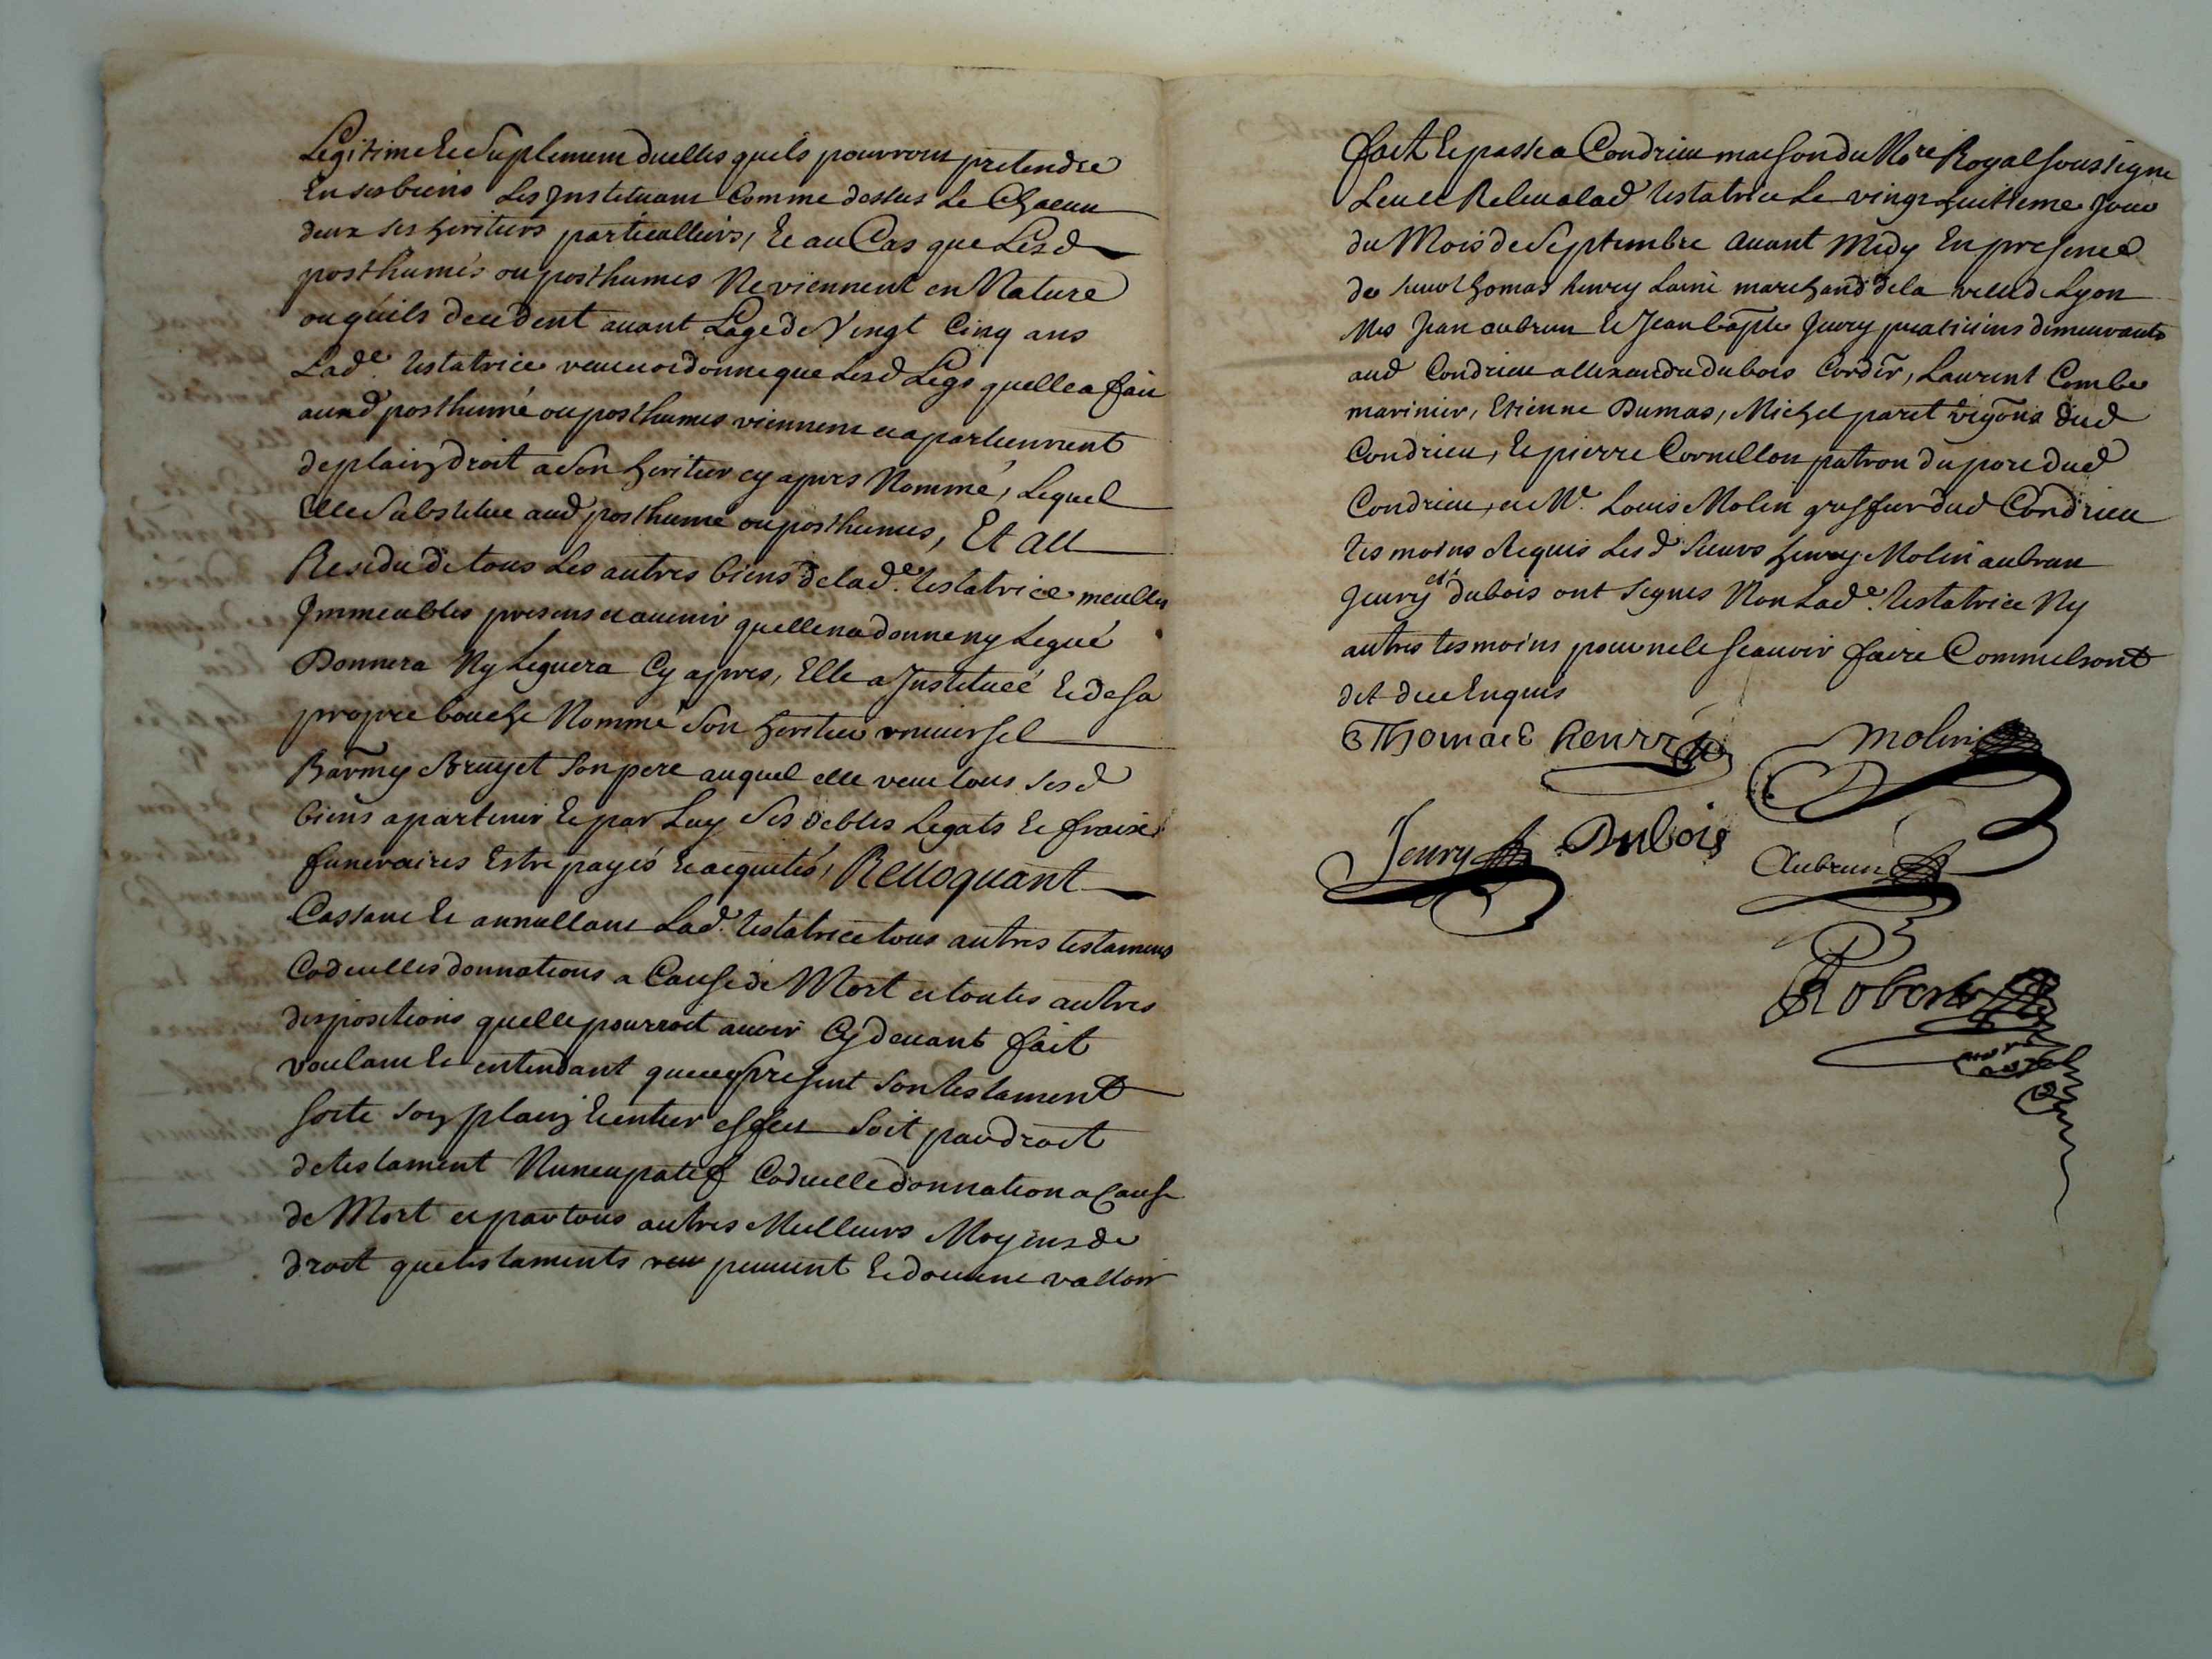 Legitime et Suplement dicelles quils pourront pretendre
En ses biens Les Instituant Comme dessus Le Chacun
deux ses heritiers particulliers, Et au Cas que Lesd
posthumés ou posthumes Ne viennent en Nature
ou quils decedent avant Lage de Vingt Cinq ans
Lad.e testatrice veut et ordonne que Lesd Legs quelle a fait
aund posthumé ou posthumes viennent et apartiennent
de plain droit a Son heritier cy apres Nommé, Lequel
Elle Substitue aud posthume ou posthumes, Et au
Residu de tous Les autres biens de lad.e testatrice meubles
Immeubles presens et avenir quelle na donne ny Legué
Donnera Ny Leguera Cy apres, Elle a Jnstitueé Et de sa
propre bouche Nommé Son heritier universel
Barmy Bruyet Son pere auquel elle veut tous sesd
biens apartenir Et par Luy Ses debtes Legats Et fraix
funeraires Estre payés Et acquités, Revoquant
Cassant Et annullant Lad. testatrice tous autres testamens
Codicilles donnations a Cause de Mort et toutes autres
dispositions quelle pourroit avoir Cy devant fait
voulant Et entendant que ce present Son testament
sorte son plain Et entier effect Soit par droit
de testament Nuncupatif Codicille donnation a Cause
de Mort et par tous autres Meilleurs Moyens de
droit que testaments peuvent Et doivent valloir
fait Et passé a Condrieu maison du No.re Royal soussigne
Leu et Releu a lad testatrice Le vingt huitieme Jour
du Mois de Septembre avant Midy En presence
de sieur thomas henry Lainé marchand de la ville de Lyon
Mes Jean aubrun Et Jean bap̃te Jeury praticiens demeurants
aud Condrieu allexandre dubois Cordier, Laurent Combe
marinier, Etienne Dumas, Michel paret vigons dud
Condrieu, Et pierre Cornillon patron du port dud
Condrieu, et M.e Louis Molin greffier dud Condrieu
tesmoins Requis Lesd Sieurs henry Molin aubrun
Jeury et dubois ont signes Non Lad.e testatrice Ny
autres tesmoins pour ne le scavoir faire Comme Ils ont
dit de ce Enquis
Thomas henry
Molin
Jeury
Dubois
Aubrun
Robert